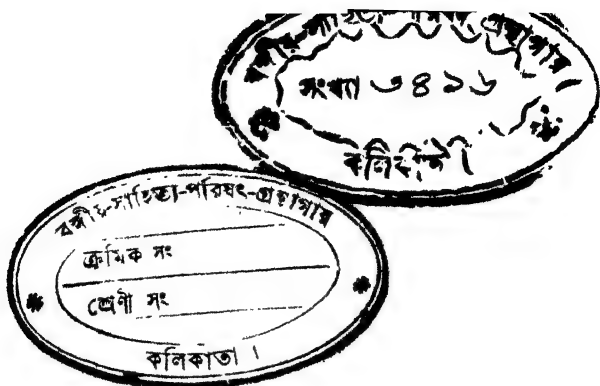 বঙ্গীয়-সাহিত্য-পরিষৎ-গ্রন্থাগার
সংখ্যা ৩৪৯৬
কলিকাতা।
বঙ্গীয়-সাহিত্য-পরিষৎ-গ্রন্থাগার
ক্রমিক সং
শ্রেণী সং
কলিকাতা।